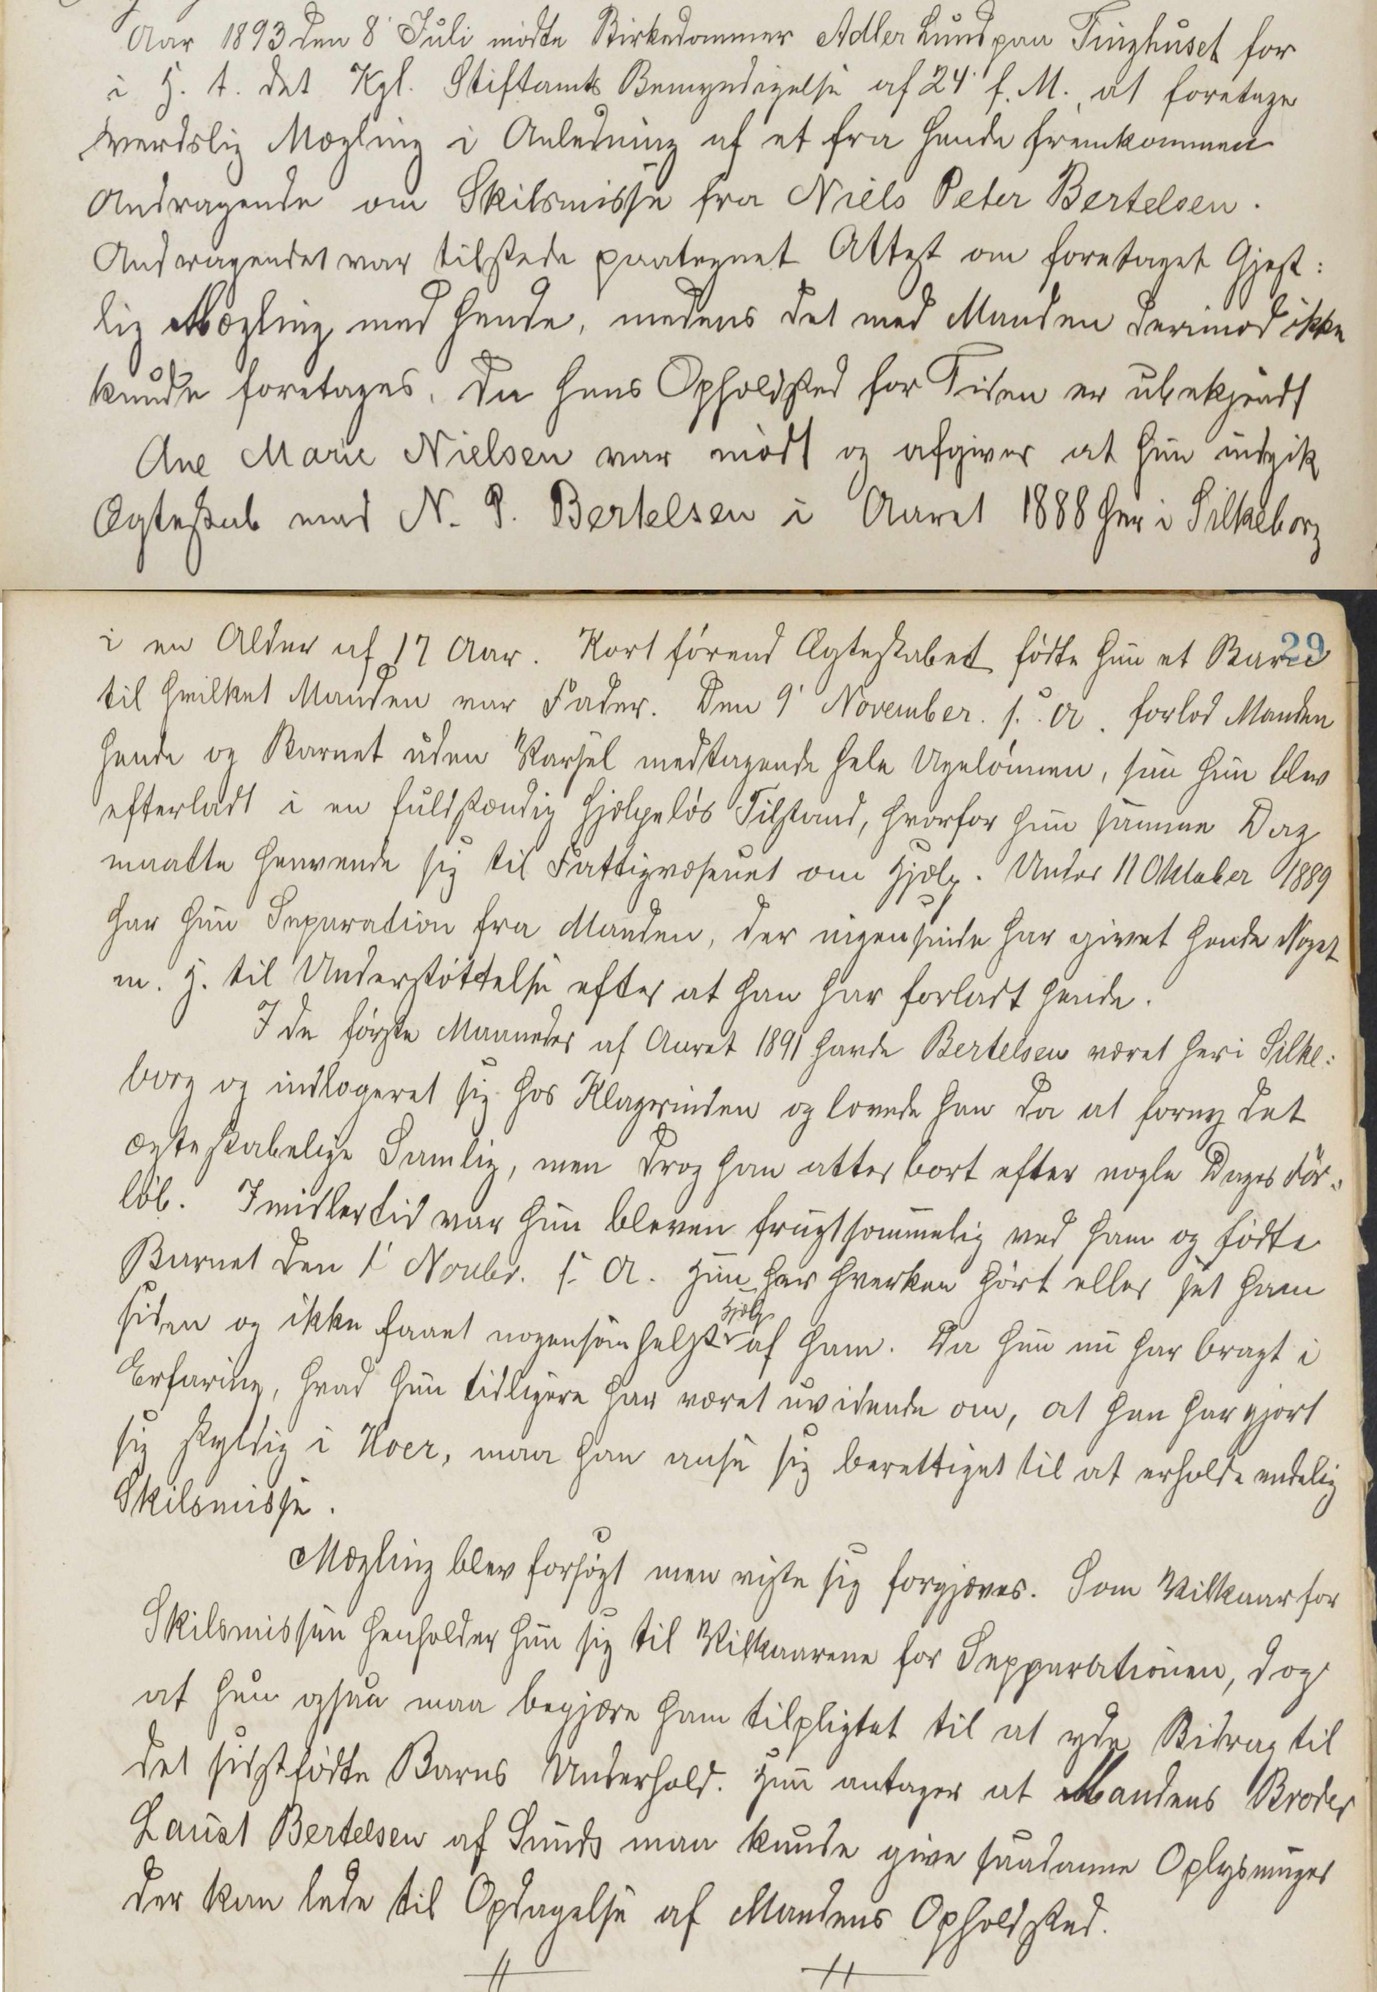 Aar 1893 den 8' Juli mødte Birkedommer Adler Lund paa Tinghuset for
i H. t. det Kgl. Stiftamts Bemyndigelse af 24' f. M., at foretage
verdslig Mægling i Anledning af et fra hende fremkommen
Andragende om Skilsmisse fra Niels Peter Bertelsen.
Andragendet var tilstede paategnet Attest om foretaget Gjest:
lig Mægling med hende, medens det med Manden derimod ikke
kunde foretages, da hans Opholdsted for Tiden er ubekjendt
Ane Marie Nielsen var mødt og afgiver at hun indgik
Ægteskab med N. P. Bertelsen i Aaret 1888 her i Silkeborg
29
i en Alder af 17 Aar. Kort førend Ægteskabet fødte hun et Barn
til hvilket Manden var Fader. Den 9' November s. A. forlod Manden
hende og Barnet uden Varsel medtagende hele Ugelønnen, saa hun blev
efterladt i en fuldstændig hjælpeløs Tilstand, hvorfor hun samme Dag
maatte henvende sig til Fattigvæsenet om Hjælp. Under 11 Oktober 1889
har hun Separation fra Manden, der ingensinde har givet hende Noget
m. H. til Understøttelse efter at han har forladt hende.
I de første Maaneder af Aaret 1891 havde Bertelsen været her i Silke:
borg og indlogeret sig hos Klagerinden og lovede han da at forny det
ægteskabelige Samliv, men drog han atter bort efter nogle Dages For:
løb. Imidlertid var hun bleven frugtsommelig ved ham og fødte
Barnet den 1' Novbr. s. A. Hun har hverken hørt eller set ham
siden og ikke faaet nogensomhelst Hjælp af ham. Da hun nu har bragt i
Erfaring, hvad hun tidligere har været uvidende om, at han har gjort
sig skyldig i Hoer, maa han anse sig berettiget til at erholde endelig
Skilsmisse.
Mægling blev forsøgt men viste sig forgjæves. Som Vilkaar for
Skilsmissen henholder hun sig til Vilkaarene for Sepparationen, dog
at hun ogsaa maa begjære ham tilpligtet til at yde Bidrag til
det sidstfødte Barns Underhold. Hun antager at Mandens Broder
Laust Bertelsen af Sunds maa kunde give saadanne Oplysninger
der kan lede til Opdagelse af Mandens Opholdsted.